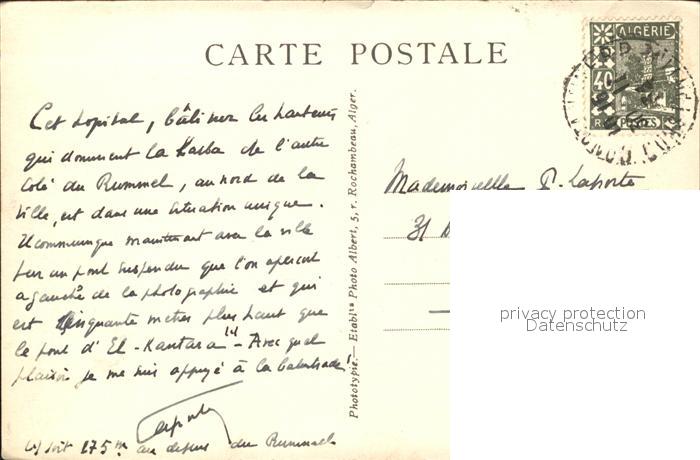 CARTE POSTALE
ALGÉRIE
40
POSTES
Cet hopital, bâti sur les hauteurs
qui dominent la Kasba de l'autre
côté du Rummel, au nord de la
ville, est dans une situation unique.
Il communique maintenant avec la ville
par un pont suspendu que l'on aperçoit
a gauche de la photographie et qui
est cinquante mètres plus haut que
le pont d'El-Kantara (1) - Avec quel
plaisir je me suis appuyé à la balustrade!
Laporte
(1) soit 175 m au dessus du Rummel
Phototypie. — Etablts Photo Albert, 5, r. Rochambeau, Alger.
Mademoiselle P. Laporte
31
privacy protection
Datenschutz